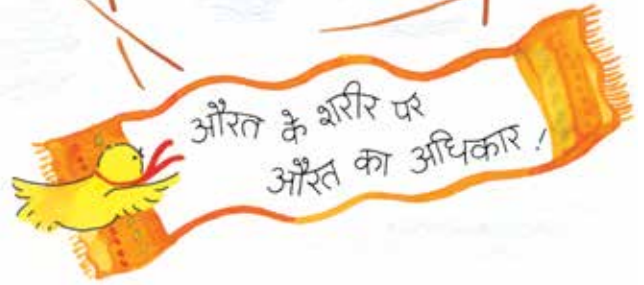 औरत के शरीर पर
औरत का अधिकार!